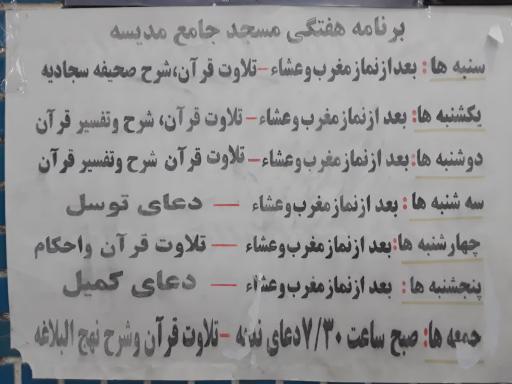 برنامه هفتگی مسجد جامع مدیسه
سنبه ها: بعد از نماز مغرب وعشاء - تلاوت قرآن، شرح صحیفه سجادیه
یکشنبه ها: بعد از نماز مغرب وعشاء - تلاوت قرآن، شرح وتفسیر قرآن
دوشنبه ها: بعد از نماز مغرب وعشاء - تلاوت قرآن شرح وتفسیر قرآن
سه شنبه ها: بعد از نماز مغرب وعشاء — دعای توسل
چهارشنبه ها: بعد از نماز مغرب وعشاء — تلاوت قرآن واحکام
پنجشنبه ها: بعد از نماز مغرب وعشاء — دعای کمیل
جمعه ها: صبح ساعت ۷/۳۰ دعای ندبه - تلاوت قرآن وشرح نهج البلاغه